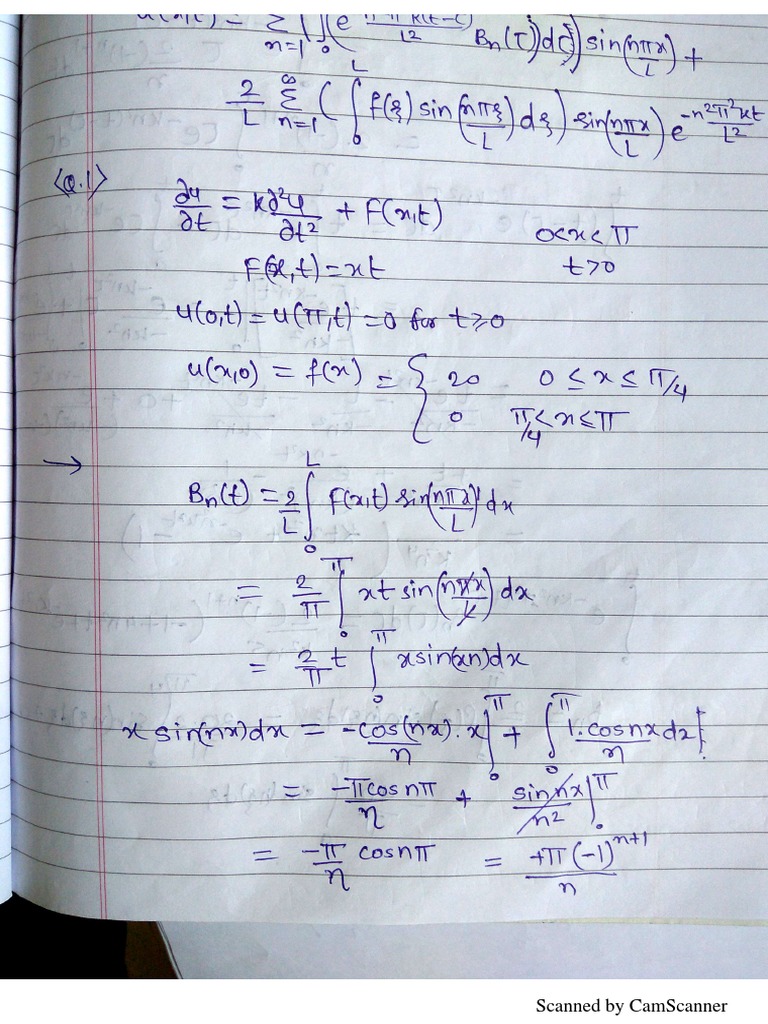 u(x,t) = Σ_{n=1}^{∞} ∫_0 (e^{-n²π²k(t-τ)/L²} B_n(τ)dτ) sin(nπx/L) +
2/L Σ_{n=1}^{∞} (∫_0^L f(ξ) sin(nπξ/L) dξ) sin(nπx/L) e^{-n²π²kt/L²}
<Q.1> ∂u/∂t = k∂²u/∂t² + F(x,t) 0<x<π
F(x,t) = xt t>0
u(0,t) = u(π,t) = 0 for t≥0
u(x,0) = f(x) = { 20 0 ≤ x ≤ π/4
0 π/4 < x ≤ π
→ B_n(t) = 2/L ∫_0^L F(x,t) sin(nπx/L) dx
= 2/π ∫_0^π xt sin(nπx/π) dx
= 2/π t ∫_0^π x sin(xn) dx
x sin(nx)dx = -cos(nx)/n . x |_0^π + ∫_0^π 1. cosnx/n dx
= -π cosnπ/n + sin nx/n² |_0^π
= -π/n cosnπ = +π(-1)^{n+1}/n
Scanned by CamScanner